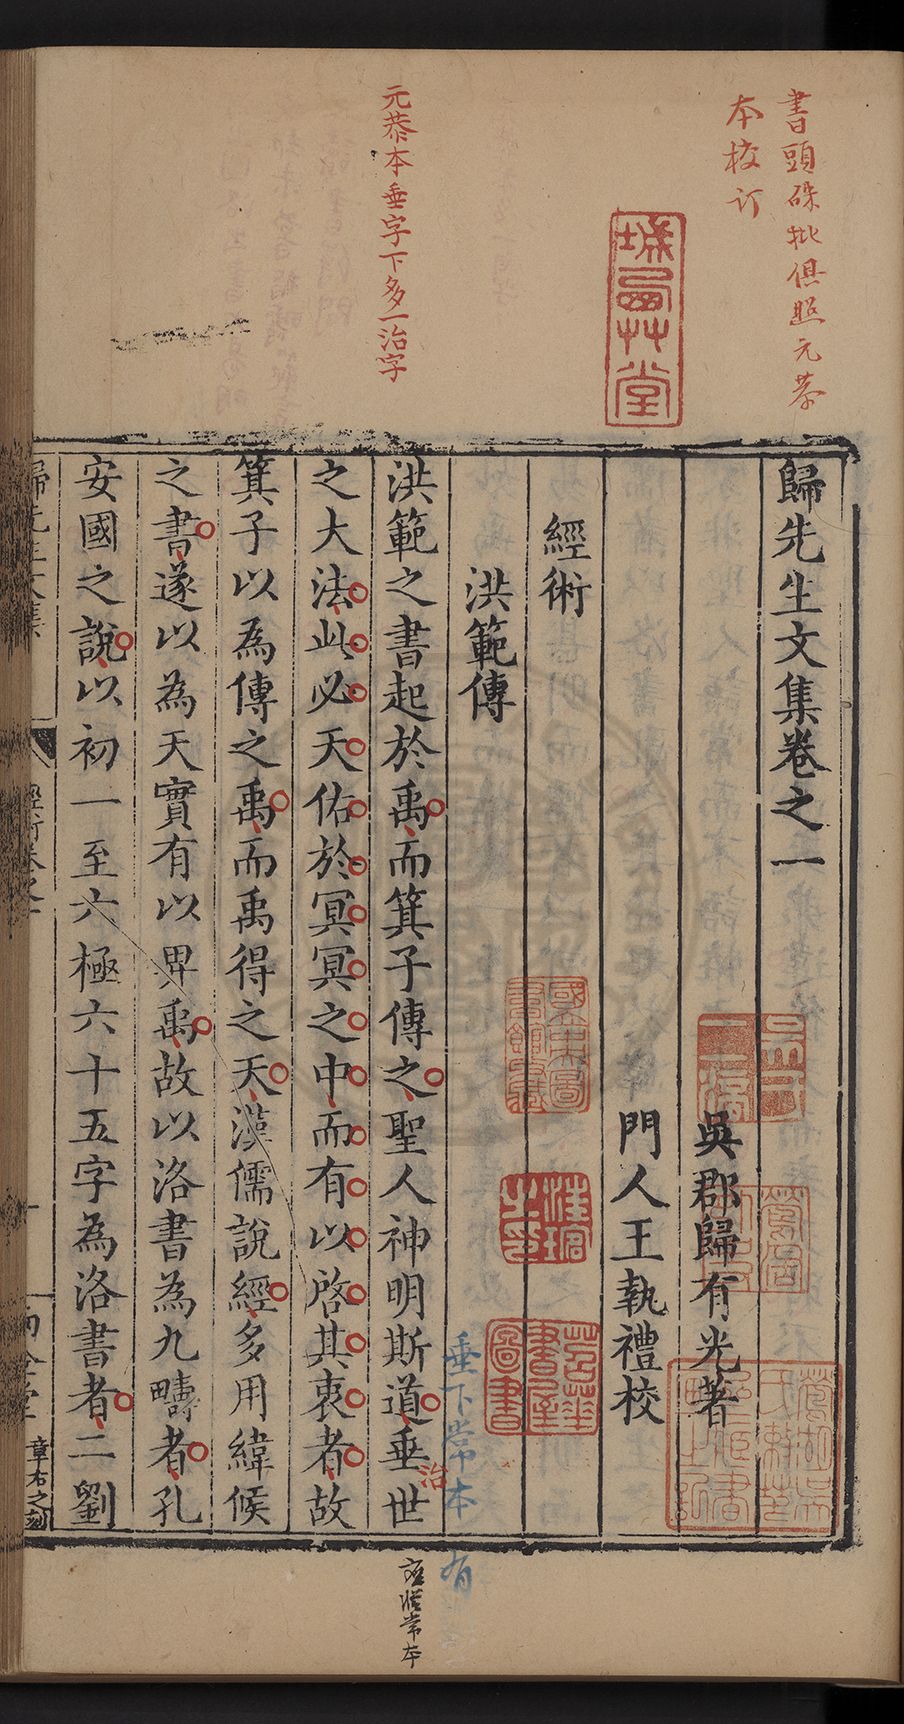 書頭硃批俱照元恭
本校订
元恭本垂字下多一治字
歸先生文集卷之一
吳郡歸有光著
門人王執禮校
經術
洪範傳
洪範之書起於禹而箕子傳之聖人神明斯道垂世
治
垂下常本有
应照常本
之大法此必天佑於冥冥之中而有以啓其衷者故
箕子以為傳之禹而禹得之天漢儒說經多用緯候
之書遂以為天實有以畀禹故以洛書為九疇者孔
安國之說以初一至六極六十五字為洛書者二劉
章右之刻
國立中央圖書館收藏
苕華書屋圖書